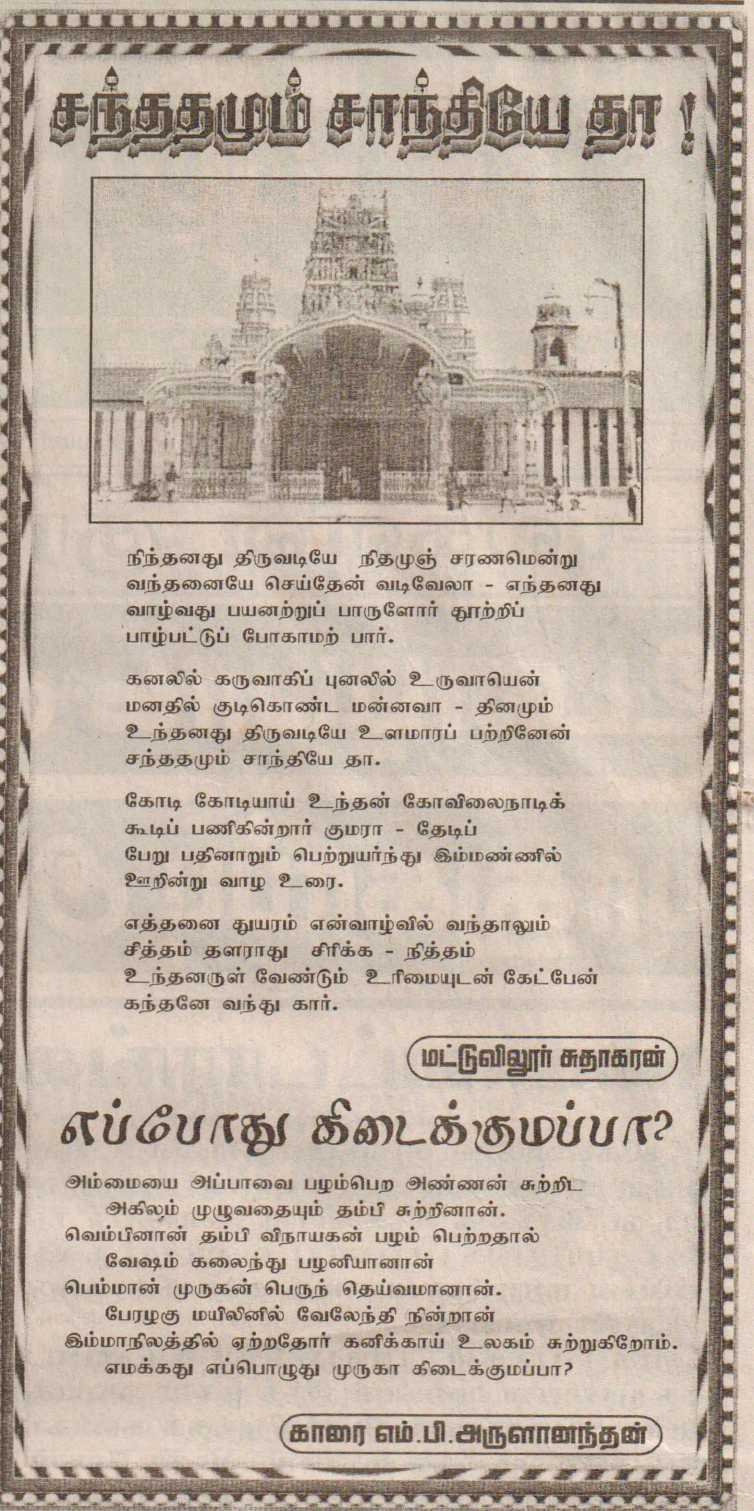 சந்ததமும் சாந்தியே தா !
நிந்தனது திருவடியே நிதமுஞ் சரணமென்று
வந்தனையே செய்தேன் வடிவேலா - எந்தனது
வாழ்வது பயனற்றுப் பாருளோர் தூற்றிப்
பாழ்பட்டுப் போகாமற் பார்.
கனலில் கருவாகிப் புனலில் உருவாயென்
மனதில் குடிகொண்ட மன்னவா - தினமும்
உந்தனது திருவடியே உளமாரப் பற்றினேன்
சந்ததமும் சாந்தியே தா.
கோடி கோடியாய் உந்தன் கோவிலைநாடிக்
கூடிப் பணிகின்றார் குமரா - தேடிப்
பேறு பதினாறும் பெற்றுயர்ந்து இம்மண்ணில்
ஊறின்று வாழ உரை.
எத்தனை துயரம் என்வாழ்வில் வந்தாலும்
சித்தம் தளராது சிரிக்க - நித்தம்
உந்தனருள் வேண்டும் உரிமையுடன் கேட்பேன்
கந்தனே வந்து கார்.
மட்டுவிலூர் சுதாகரன்
எப்போது கிடைக்குமப்பா?
அம்மையை அப்பாவை பழம்பெற அண்ணன் சுற்றிட
அகிலம் முழுவதையும் தம்பி சுற்றினான்.
வெம்பினான் தம்பி விநாயகன் பழம் பெற்றதால்
வேஷம் கலைந்து பழனியானான்
பெம்மான் முருகன் பெருந் தெய்வமானான்.
பேரழகு மயிலினில் வேலேந்தி நின்றான்
இம்மாநிலத்தில் ஏற்றதோர் கனிக்காய் உலகம் சுற்றுகிறோம்.
எமக்கது எப்பொழுது முருகா கிடைக்குமப்பா?
காரை எம்.பி.அருளானந்தன்